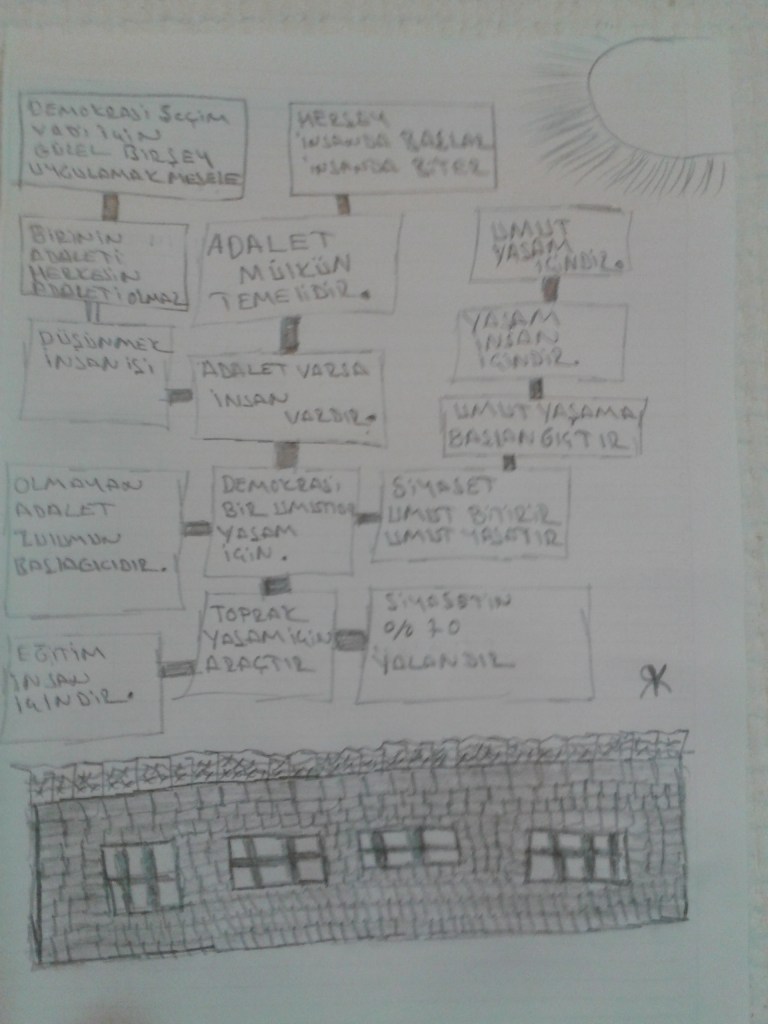 DEMOKRASİ SEÇİM
VADİ İÇİN
GÜZEL BİRŞEY
UYGULAMAK MESELE
HERŞEY
İNSANDA BAŞLAR
İNSANDA BİTER
BİRİNİN
ADALETİ
HERKESİN
ADALETİ OLMAZ
ADALET
MÜLKÜN
TEMELİDİR.
UMUT
YAŞAM
İÇİNDİR.
DÜŞÜNMEK
İNSAN İŞİ
ADALET VARSA
İNSAN
VARDIR.
YAŞAM
İNSAN
İÇİNDİR.
UMUT YAŞAMA
BAŞLANGIÇTIR
OLMAYAN
ADALET
ZULUMUN
BAŞLAGICIDIR.
DEMOKRASİ
BİR UMUTTUR
YAŞAM
İÇİN.
SİYASET
UMUT BİTİRİR
UMUT YAŞATIR
EĞİTİM
İNSAN
İÇİNDİR.
TOPRAK
YAŞAM İÇİN
ARAÇTIR
SİYASETİN
%70
YALANDIR